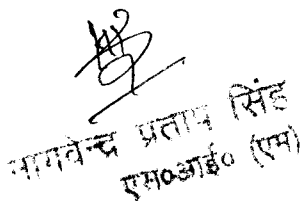 नागवेन्द्र प्रताप सिंह
एस०आई० (एम)